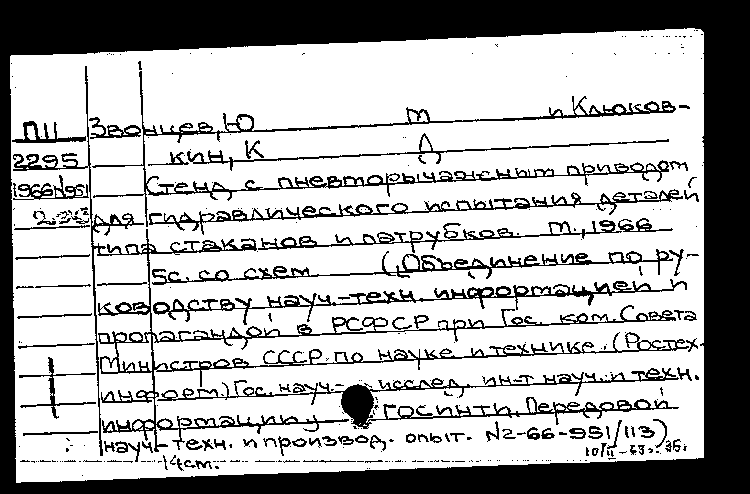 П11 Звонцев, Ю М и Клюков-
2295 кин, К Д
1966№951 Стенд с пневторычажным приводом
для гидравлического испытания деталей
типа стаканов и патрубков. М., 1966
5с. со схем (Объединение по ру-
ководству науч.-техн. информацией и
пропагандой в РСФСР при Гос. ком. Совета
Министров СССР по науке и технике. (Ростех-
информ.) Гос. науч.- исслед. ин-т науч. и техн.
информации ГОСИНТИ. Передовой
науч.-техн. и производ. опыт. №2-66-951/113)
14см.